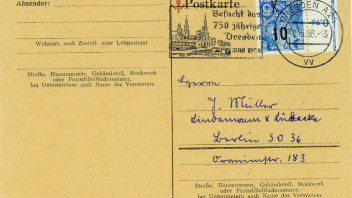 Absender:
Wohnort, auch Zustell- oder Leitpostamt
Straße, Hausnummer, Gebäudeteil, Stockwerk
oder Postschließfachnummer,
bei Untermietern auch Name des Vermieters
Postkarte
Besucht das
750 jährige
Dresden
JUNI 1956
DRESDEN A
VV
10
Herrn
J. Müller
Lindemann & Lüdecke
Berlin SO 36
Oranienstr. 183
Straße, Hausnummer, Gebäudeteil, Stockwerk
oder Postschließfachnummer,
bei Untermietern auch Name des Vermieters